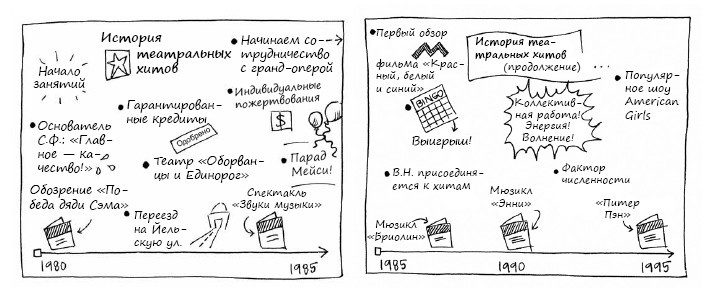 История
театральных
хитов
Начало
занятий
• Начинаем со-
трудничество
с гранд-оперой
• Индивидуальные
пожертвования
$
• Гарантирован-
ные кредиты
Одобрено
• Основатель
С.Ф.: «Глав-
ное — ка-
чество!»
• Театр «Оборван-
цы и Единорог»
• Парад
Мейси!
Обозрение «По-
беда дяди Сэма»
• Переезд
на Йель-
скую ул.
Спектакль
«Звуки музыки»
1980
1985
• Первый обзор
фильма «Крас-
ный, белый
и синий»
История теа-
тральных хитов
(продолжение)
...
• Популяр-
ное шоу
American
Girls
• BINGO
Выигрыш!
Коллектив-
ная работа!
Энергия!
Волнение!
• В.Н. присоединя-
ется к хитам
• Фактор
численности
Мюзикл
«Бриолин»
Мюзикл
«Энни»
«Питер
Пэн»
1985
1990
1995